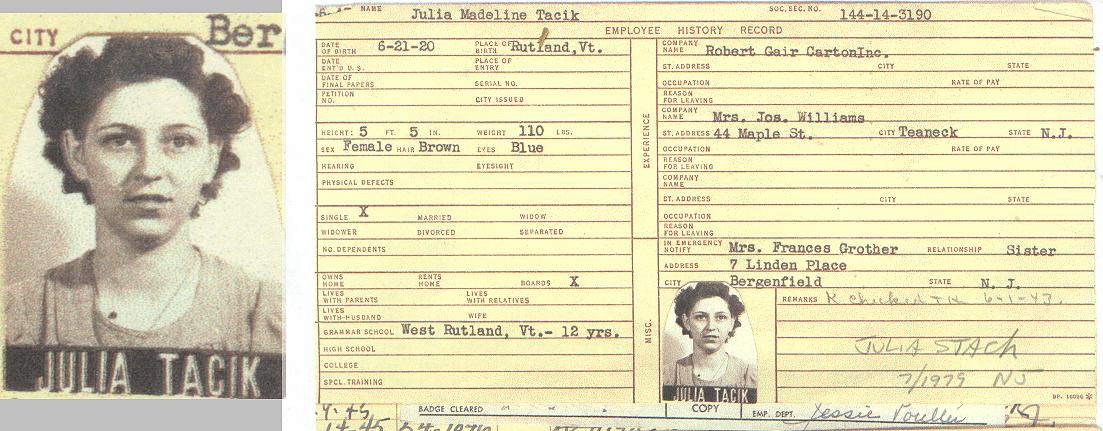 CITY Ber
JULIA TACIK
NAME Julia Madeline Tacik SOC. SEC. NO. 144-14-3190
EMPLOYEE HISTORY RECORD
DATE OF BIRTH 6-21-20 PLACE OF BIRTH Rutland,Vt.
DATE ENT'D U.S. PLACE OF ENTRY
DATE OF FINAL PAPERS SERIAL NO.
PETITION NO. CITY ISSUED
HEIGHT: 5 FT. 5 IN. WEIGHT 110 LBS.
SEX Female HAIR Brown EYES Blue
HEARING EYESIGHT
PHYSICAL DEFECTS
SINGLE X MARRIED WIDOW
WIDOWER DIVORCED SEPARATED
NO. DEPENDENTS
OWNS HOME RENTS HOME BOARDS X
LIVES WITH PARENTS LIVES WITH RELATIVES
LIVES WITH-HUSBAND WIFE
GRAMMAR SCHOOL West Rutland, Vt.- 12 yrs.
HIGH SCHOOL
COLLEGE
SPCL. TRAINING
EXPERIENCE
COMPANY NAME Robert Gair CartonInc.
ST. ADDRESS CITY STATE
OCCUPATION RATE OF PAY
REASON FOR LEAVING
COMPANY NAME Mrs. Jos. Williams
ST. ADDRESS 44 Maple St. CITY Teaneck STATE N.J.
OCCUPATION RATE OF PAY
REASON FOR LEAVING
COMPANY NAME
ST. ADDRESS CITY STATE
OCCUPATION
REASON FOR LEAVING
MISC.
IN EMERGENCY NOTIFY Mrs. Frances Grother RELATIONSHIP Sister
ADDRESS 7 Linden Place
CITY Bergenfield STATE N. J.
REMARKS 6-1-43.
JULIA STACH
7/1979 NJ
JULIA TACIK
BADGE CLEARED COPY EMP. DEPT. Jessie